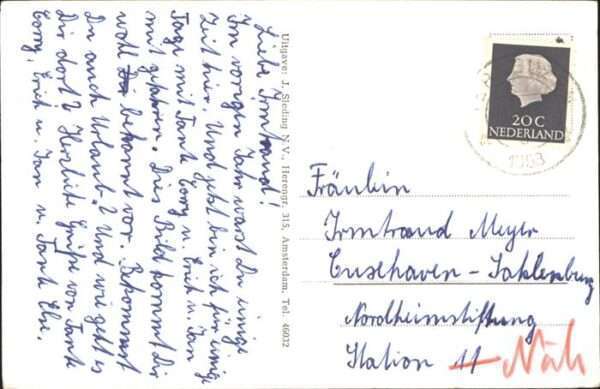 Liebe Irmtraud!
Im vorigen Jahr warst Du einige
Zeit hier. Und jetzt bin ich für einige
Tage mit Tante Corry u. Erik u. Jan
mit gefahren. Dies Bild kommt Dir
wohl bekannt vor. Bekommst
Du auch Urlaub? Und wie geht es
Dir dort? Herzliche Grüße von Tante
Corry, Erik u. Jan u. Tante Else.
Uitgave: J. Sleding N.V., Herengr. 315, Amsterdam, Tel. 46032
20 C
NEDERLAND
Fräulein
Irmtraud Meyer
Cuxhaven-Sahlenburg
Nordheimstiftung
Station 11 Näh